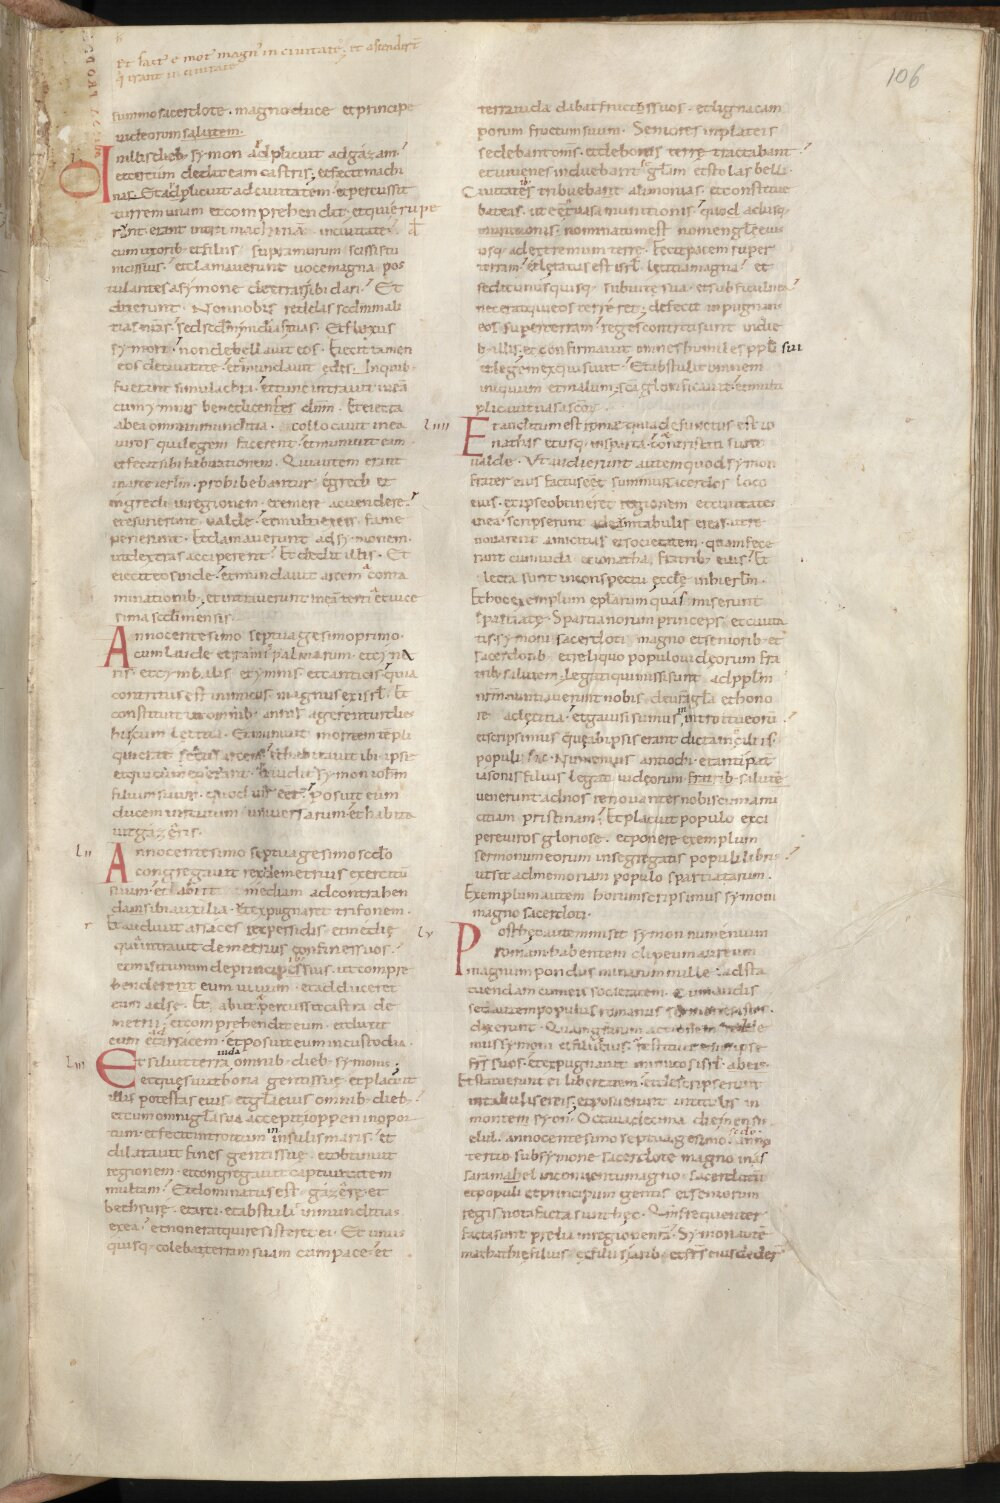 106
Et fact̄ e mot' magn' in ciuitatē. et ascendert̄
q̄ erant in ciuitate
summo sacerdote. magno duce et principe
iudeorum salutem.
In illis dieb; symon adplicuit ad gazam.
et circumdedit eam castris; et fecit machi
nas. Et adplicuit ad ciuitatem. et percussit
turrem unam et comprehendit. et qui erupe
rant. erant intra machina. in ciuitatē.
cum uxorib; et filiis supra murum scissis tu
nicis suis. et clamauerunt uoce magna pos
tulantes a symone dextras sibi dari. Et
dixerunt. Non nobis reddas sedm mali
tias nr̄as. sed sedm misdias tuas. Et flexus
symon. non debellauit eos. Eiecit tamen
eos de ciuitate. et mundauit ędes. In quib;
fuerant simulachra. et tunc intrauit in eā
cum ymnis benedicentes dn̄m. Et eiecta
ab ea omni inmunditia. collocauit in ea
uiros qui legem facerent. et muniuit eam
et fecit sibi habitationem. Qui autem erant
in arce ierl̄m. prohibebantur ęgredi et
ingredi in regionem. et emere ac uendere.
et esurierunt ualde. et multi ex eis fame
perierunt. Et clamauerunt ad symonem.
ut dextras acciperent. Et dedit illis. Et
eiecit eos inde. et mundauit arcem a conta
minationib; et intrauerunt in eā tertia et uice
sima sc̄di mensis.
lii Anno centesimo septuagesimo primo.
cum laude et ramis palmarum. et cyna
ris. et cymbalis et ymnis. et canticis. quia
contritus est inimicus magnus ex isrl̄. Et
constituit ut omnib; annis agerentur dies
hii cum letitia. Et muniuit montem tēpli
qui erat secus arcem. et habitauit ibi ipse
et qui cum eo erant. Et uidit symon iohm
filium suum. quod uir eet. Posuit eum
ducem uirtutum uniuersarum. et habita
uit gazęris.
Anno centesimo septuagesimo sc̄do
congregauit rex demetrius exercitū
suum. et abiit mediam ad contrahen
da sibi auxilia. et expugnaret trifonem.
Et audiuit arsaces rex persidis et medię
quia intrauit demetrius confines suos.
et misit unum de principib; suis. ut compre
henderent eum uiuum. et adduceret
eum ad se. Et abiit. et percussit castra de
metrii. et comprehendit eum. et duxit
eum ad arsacem. et posuit eum in custodia.
liii Et siluit terra iuda omnib; dieb; symonis;
et quęsiuit bona genti suę. et placuit
illis potestas eius. et gl̄a eius omnib; dieb;
et cum omni gl̄a sua accepit ioppen in por
tum. et fecit introitum in insulis maris. et
dilatauit fines gentis suę. et obtinuit
regionem. et congregauit captiuitatem
multam. Et dominatus est gazęre. et
bethsure. et arci. et abstulit inmunditias
ex ea. et non erat qui resisteret ei. Et unus
quisq; colebat terram suam cum pace. et
terra iuda dabat fructus suos. et ligna cam
porum fructum suum. Seniores in plateis
sedebant om̄s. et de bonis terrę tractabant.
et iuuenes induebant gl̄am. et stolas belli
Ciuitatib; tribuebant alimonias. et constitue
bat eas. ut eēnt uasa munitionis. quod adusq;
munitionis nominatum est nomen glę eius
usq; ad extremum terrę. Fecit pacem super
terram. et lętatus est isrl̄ letitia magna. et
sedit unusquisq; sub uite sua. et sub ficulnea
nec erat qui eos terreret; defecit inpugnans
eos super terram. reges contriti sunt in die
b; illis. et confirmauit omnes humiles ppl̄i sui
et legem exquisiuit. Et abstulit omnem
iniquum et malum. sc̄a glorificauit. et multi
plicauit uasa sc̄or̄.
liiii Et auditum est romę quia defunctus est io
nathas. et usq; in sparta. et contristati sunt
ualde. Ut audierunt autem quod symon
frater eius factus eet summus sacerdos loco
eius. et ipse obtineret regionem et ciuitates
in ea. scripserunt ad eum in tabulis ereis. ut re
nouarent amicitias et societatem. quam fece
runt cum iuda et ionatha. fratrib; eius. Et
lecta sunt in conspectu ęcclę in hierl̄m.
Et hoc exemplum eplarum quas miserunt
spartiatę. Spartianorum princeps et ciuita
tis. symoni sacerdoti magno et seniorib; et
sacerdotib; et reliquo populo iudęorum fra
trib; salutem. legati qui missi sunt ad ppl̄m
nr̄m nuntiauerunt nobis de ura gl̄a et hono
re ac lętitia. et gauisi sumus in introitu eorū
et scripsimus quę ab ipsis erant dicta in cōciliis
populi sic. Numenius antiochi. et antipat̄
iasonis filius legati iudęorum fratrib; salutē
uenerunt ad nos renouantes nobiscum ami
citiam pristinam. Et placuit populo exci
pere uiros gloriose. et ponere exemplum
sermonum eorum in segregatis populi libris
ut sit ad memoriam populo spartiatarum.
Exemplum autem horum scripsimus symoni
magno sacerdoti.
lv Post hęc autem misit symon numenium
romam habentem clipeum aureum
magnum pondus minarum mille. ad sta
tuendam cum eis societatem. Cum audis
set autem populus romanus sermones istos.
dixerunt. Quam gratiarum actionem reddē
mus symoni. et filiis eius. restituit enim ipse
frs̄ suos. et expugnauit inimicos isrl̄ ab eis.
Et statuerunt ei libertatem. et descripserunt
in tabulis ereis. et posuerunt in titulis in
montem syon. Octaua decima die mensis
elul. anno centesimo septuagesimo sc̄do. anno
tertio sub symone sacerdote magno in as
saramahel in conuentu magno sacerdotū
et populi. et principum gentis et seniorum
regis. nota facta sunt hęc. Qm̄ frequenter
facta sunt prelia in regione nr̄a. Symon autē
mathathię filius. ex filiis iarib; et frs̄ eius dedert̄